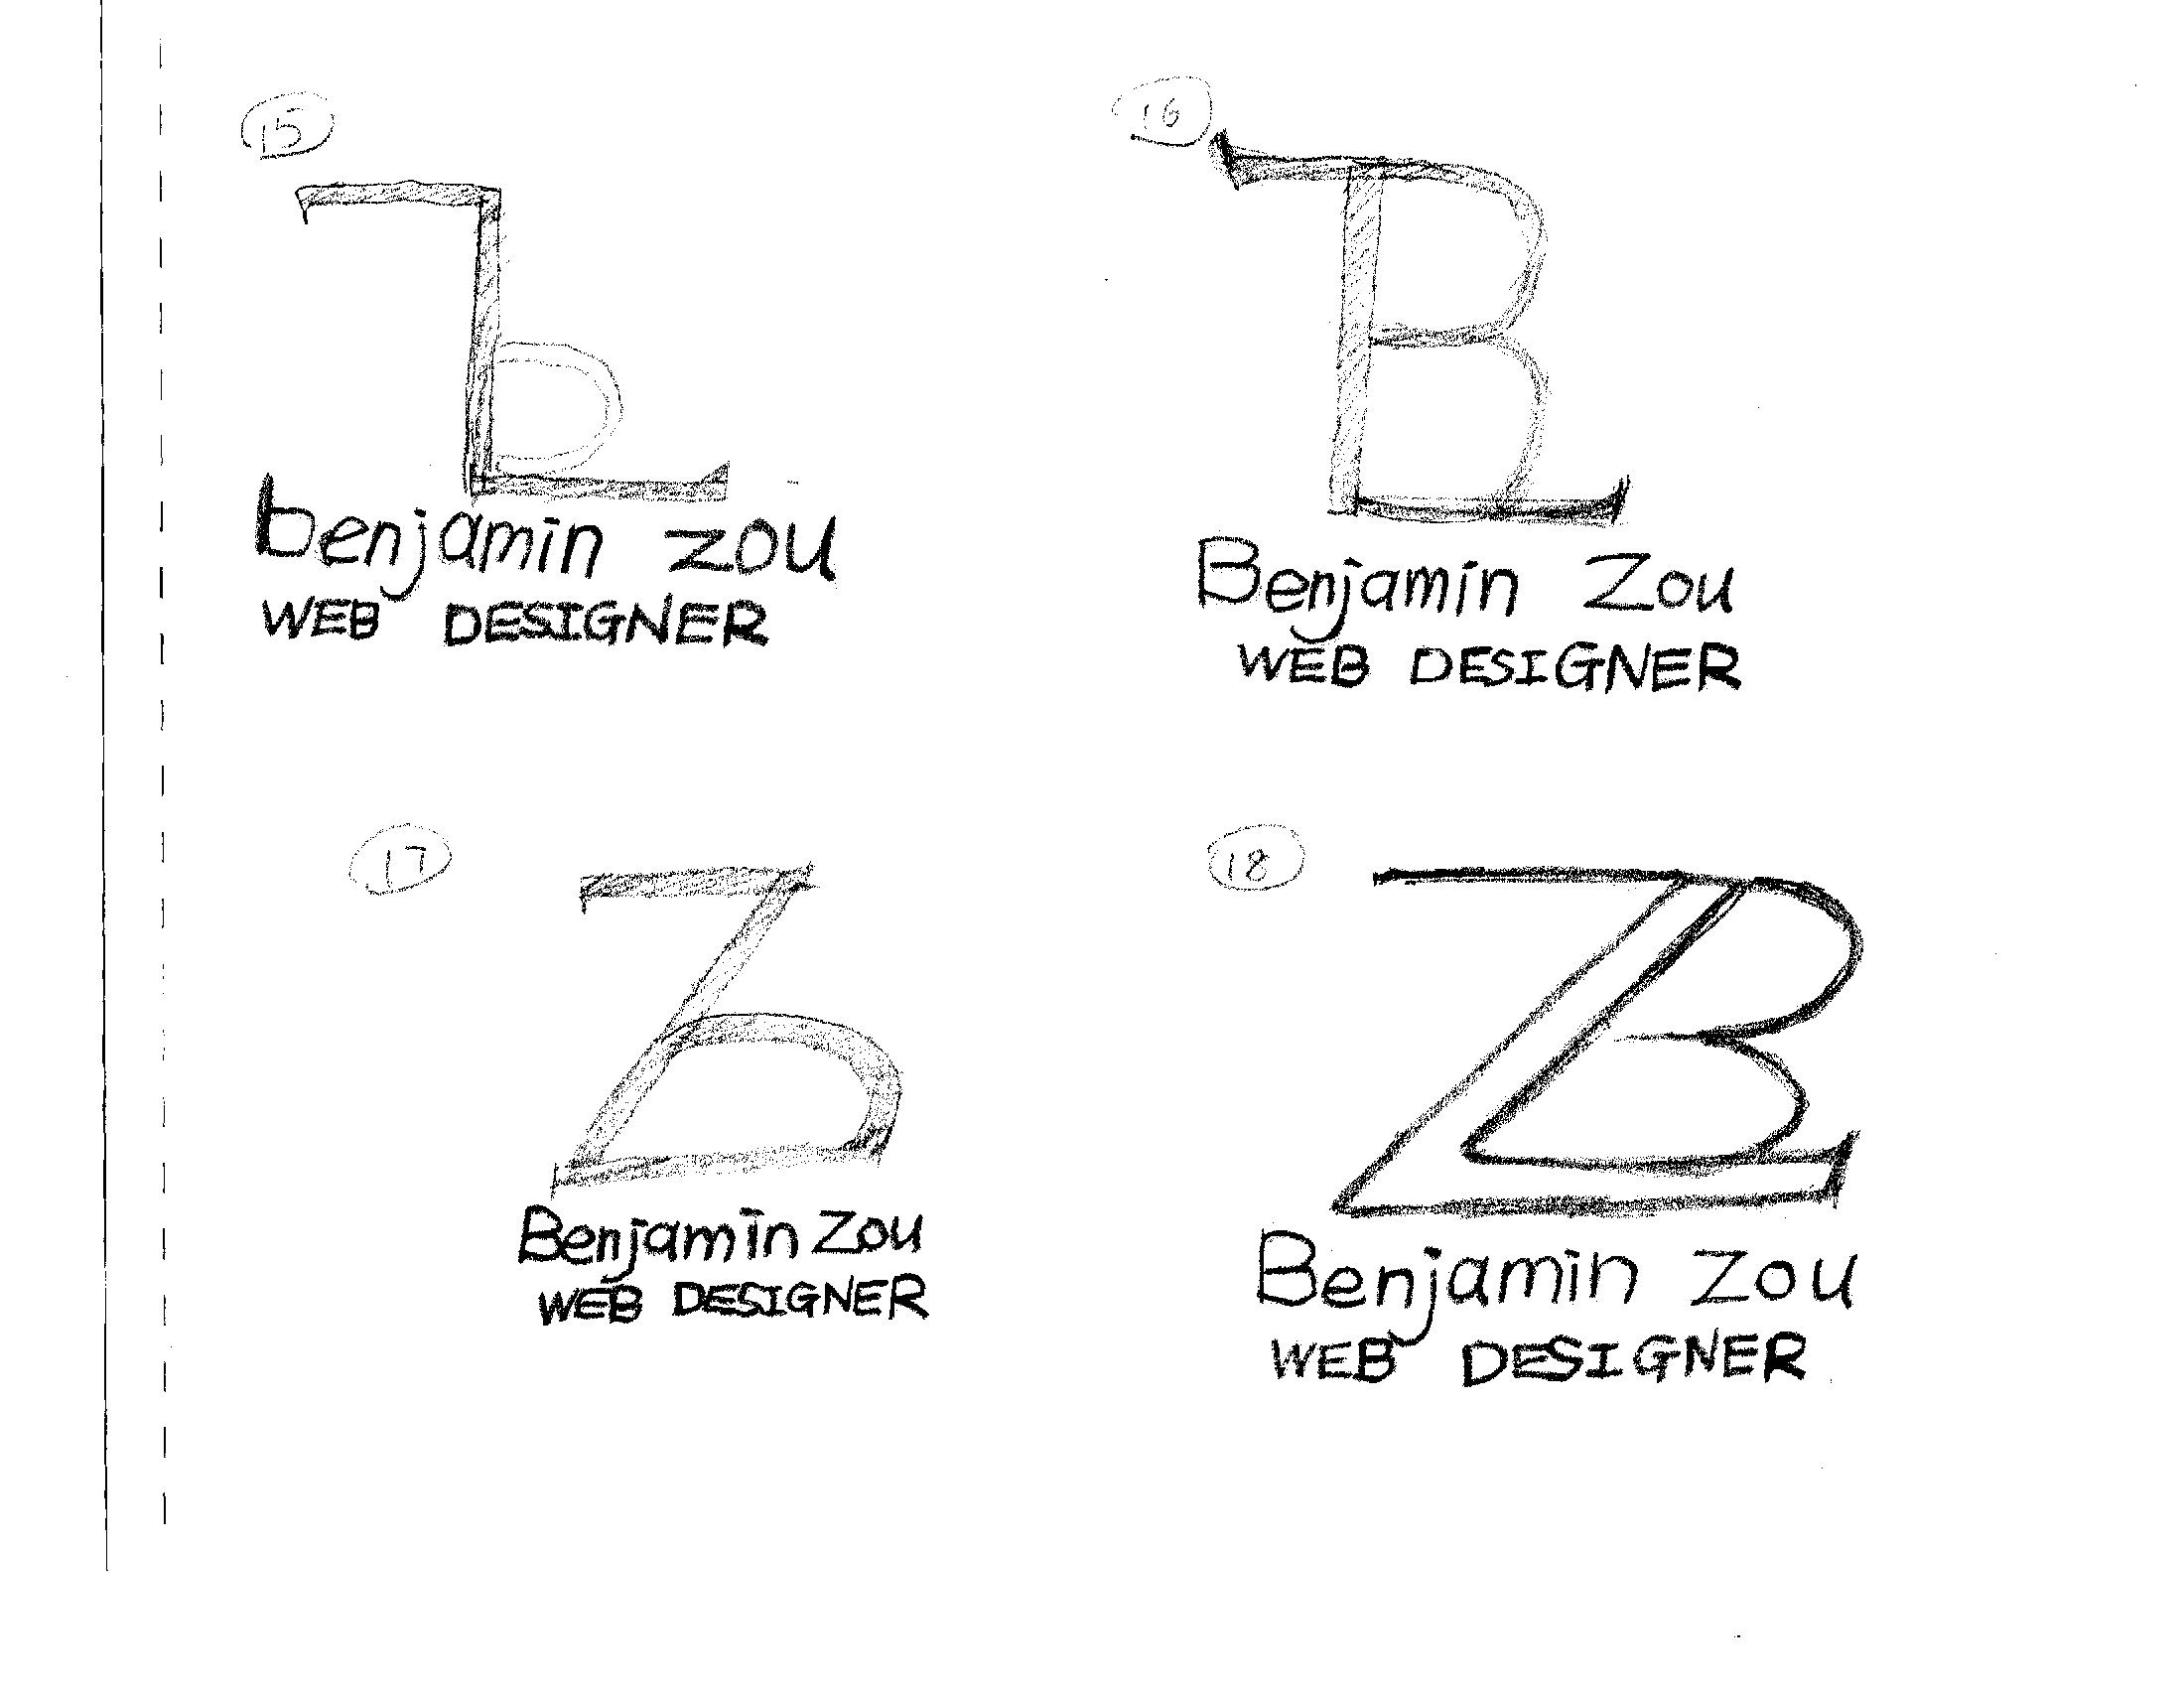 15
benjamin zou
WEB DESIGNER
16
B
Benjamin Zou
WEB DESIGNER
17
Benjamin Zou
WEB DESIGNER
18
ZB
Benjamin Zou
WEB DESIGNER